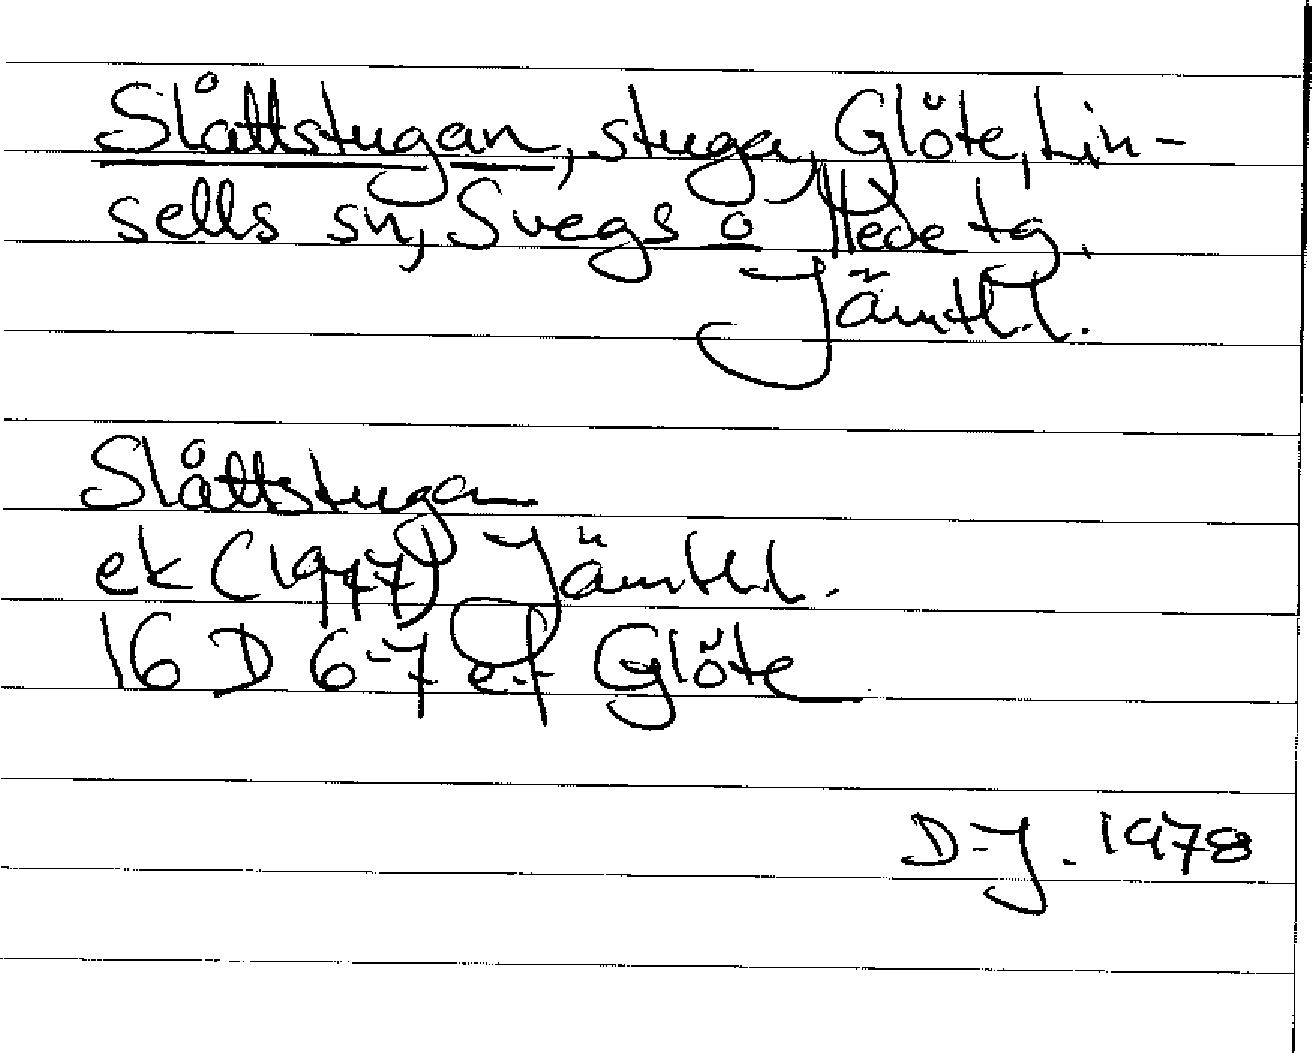 Slåttstugan, stuga, Glöte, Lin-
sells sn, Svegs o Hede tg.
Jämtl. l.
Slåttstugan
ek (1947) Jämtl. l.
16 D 6-7 e-f Glöte
D-J. 1978